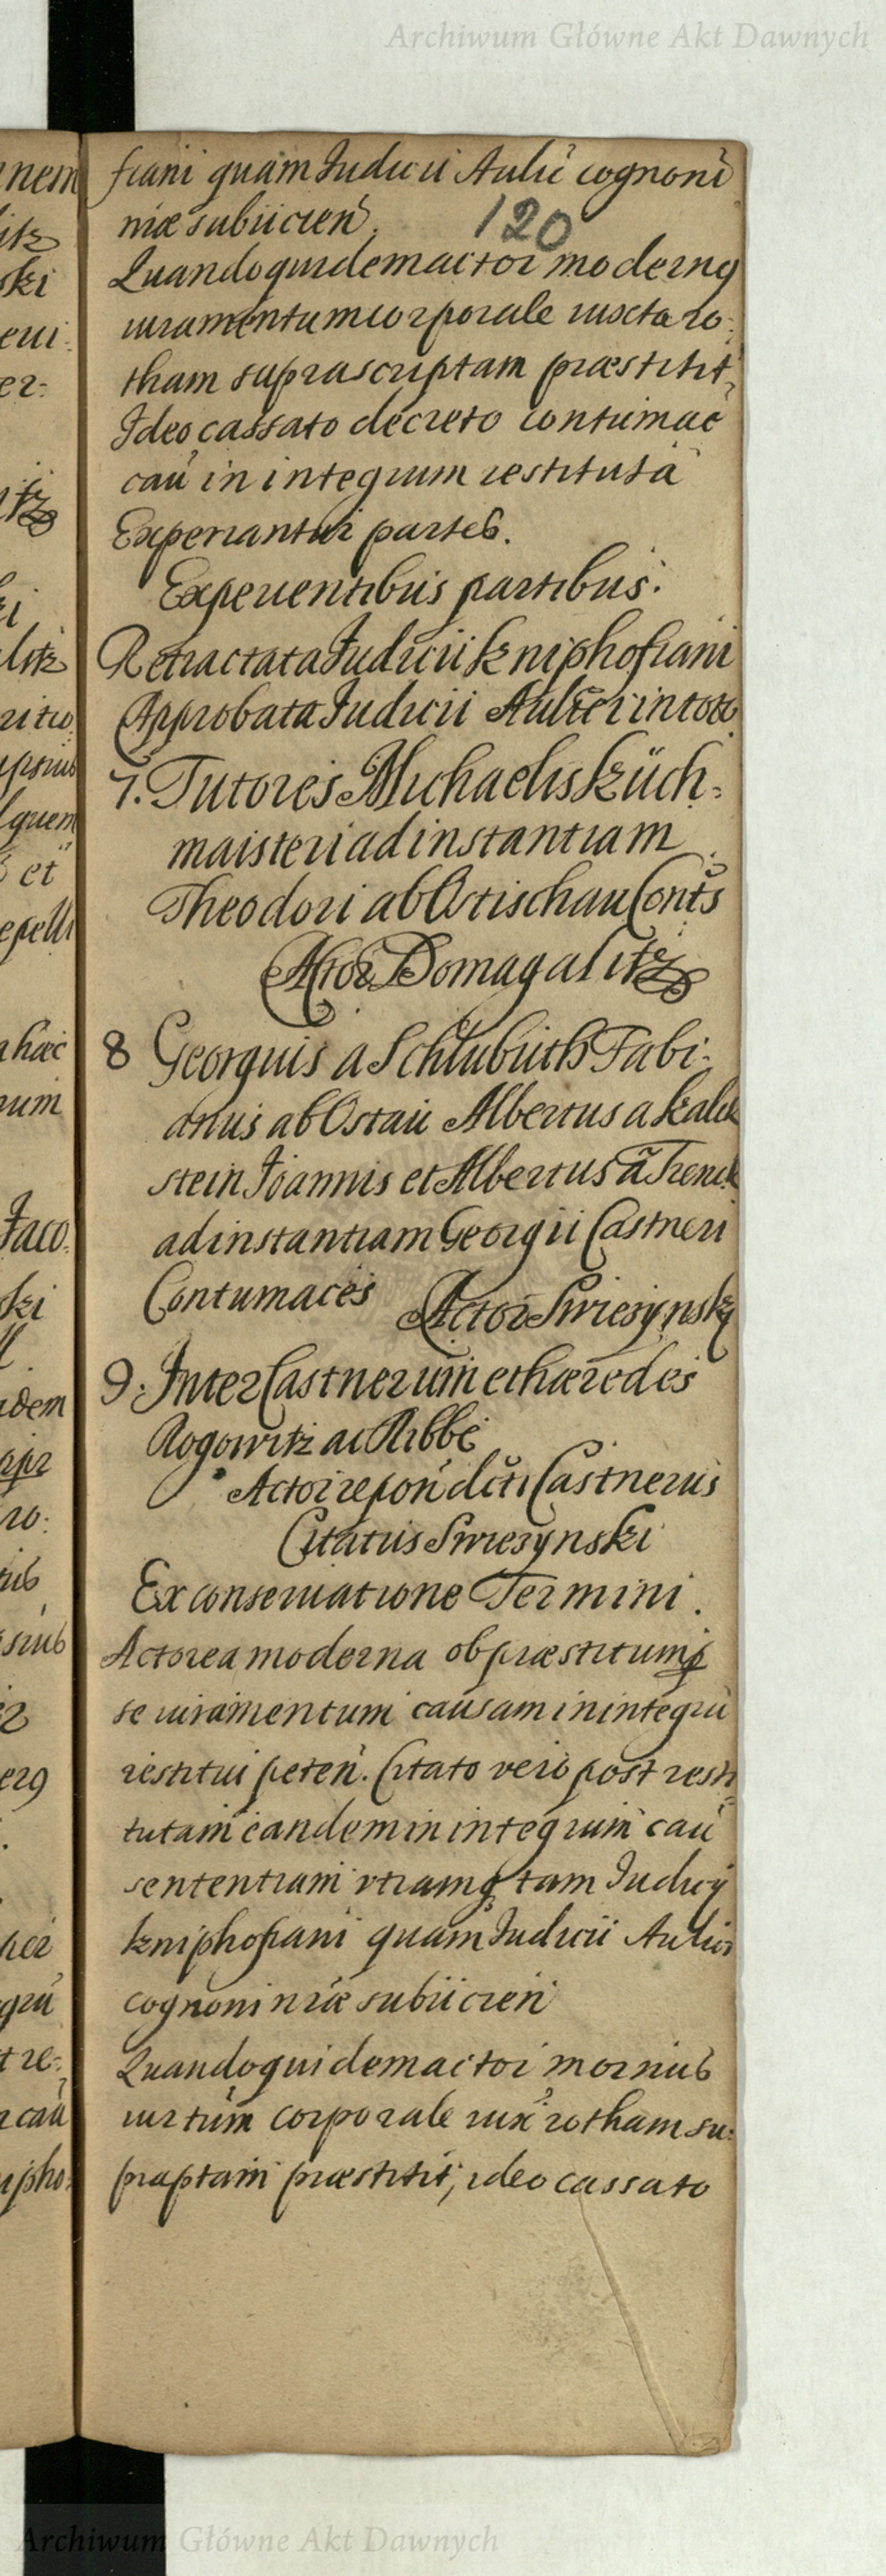 Archiwum Główne Akt Dawnych
fiani quam Iudicii Aulic̄ cognoni
niæ subiicien̄.
120
Quandoquidem actor modernꝰ
iuramentum corporale iuxta ro:
tham suprascriptam præstitit,
Ideo cassato decreto contumac̄
cau̇ in integrum restituta
Experiantur partes.
Experientibus partibus.
Retractata Iudicii kniphofiani
Approbata Iudicii Aulic̄ in toto
7. Tutores Michaelis küch:
maisteri ad instantiam
Theodori ab Ostischau Conts
Actor Domagalitz
8 Georgius a Schlubuth Fabi:
anus ab Ostau Albertus a kalck
stein Ioannis et Albertus a Trenck
ad instantiam Georgii Castneri
Contumaces Actor Swiezynsky
9. Inter Castnerum et hæredes
Rogowitz ac Ribbe
Actor repon̄ dcti Castnerus
Citatus Swiezynski
Ex conseruatione Termini.
Actorea moderna ob præstitum ꝑ
se iuramentum causam in integrū
restitui peten̄. Citato vero post resti
tutam eandem in integrum cau̇
sententiam vtramq tam Iudicÿ
kniphofiani quam Iudicii Aulici
cognoni nræ subiicien̄
Quandoquidem actor mornus
iurtum corporale iux̄ rotham su:
praptam præstitit, ideo cassato
Archiwum Główne Akt Dawnych